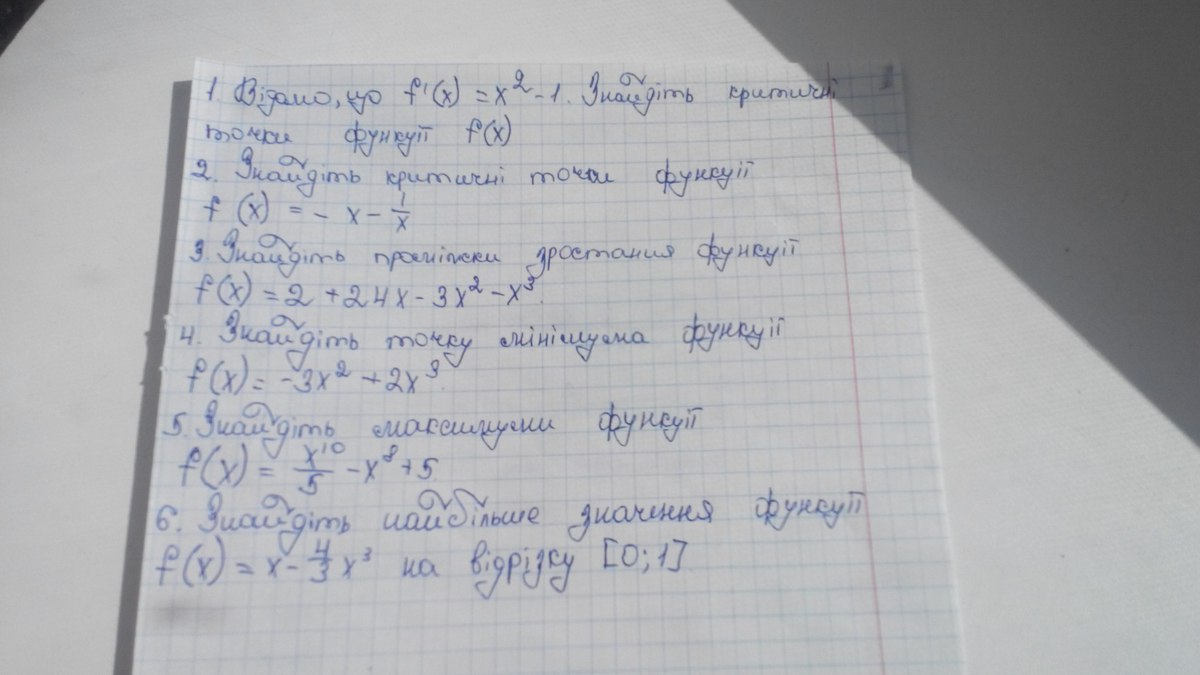 1. Відомо, що f'(x) = x² - 1. Знайдіть критичні
точки функції f(x)
2. Знайдіть критичні точки функції
f(x) = - x - 1/x
3. Знайдіть проміжки зростання функції
f(x) = 2 + 24x - 3x² - x³.
4. Знайдіть точку мінімума функції
f(x) = -3x² + 2x³.
5. Знайдіть максимуми функції
f(x) = x¹⁰/5 - x⁸ + 5.
6. Знайдіть найбільше значення функції
f(x) = x - 4/3 x³ на відрізку [0; 1]